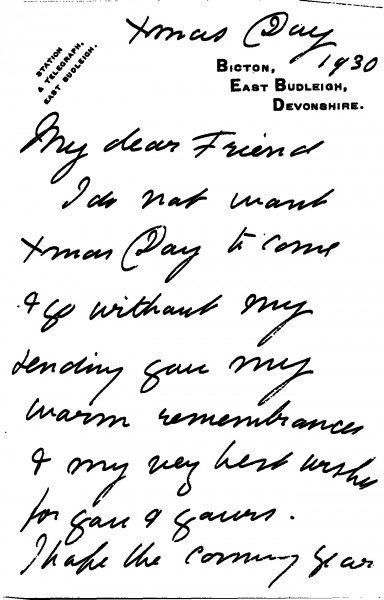 Xmas Day
1930
STATION
& TELEGRAPH,
EAST BUDLEIGH.
BICTON,
EAST BUDLEIGH,
DEVONSHIRE.
My dear Friend
I do not want
Xmas Day to come
& go without my
sending you my
warm remembrances
& my very best wishes
for you & yours.
I hope the coming year